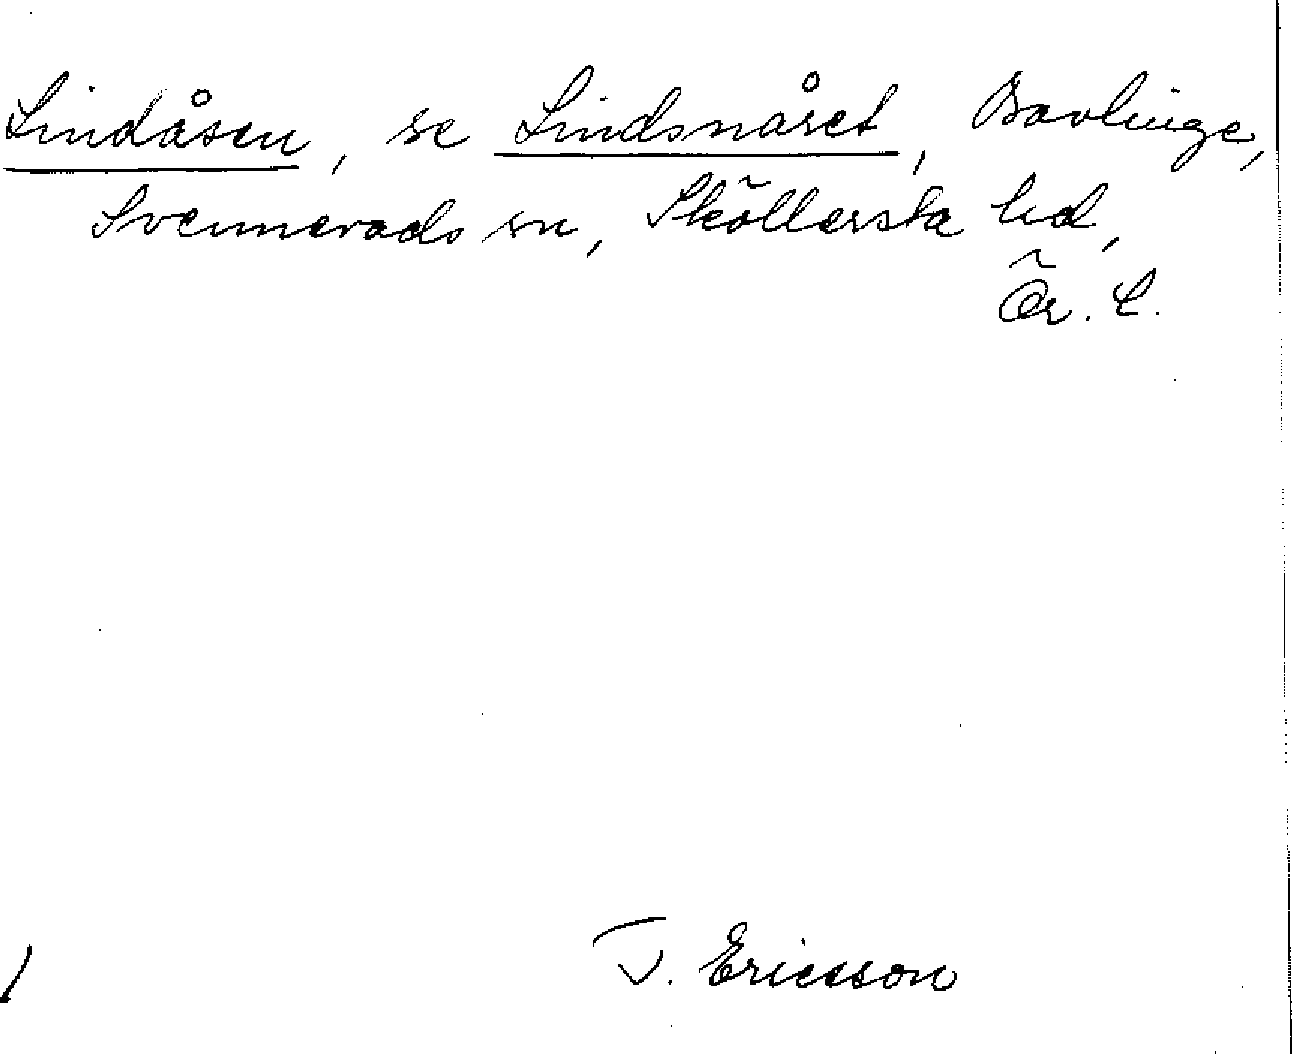 Lindåsen, se Lindsnåret, Bavlinge,
Svennevads sn, Sköllersta hd,
Ör. L.
T. Ericsson